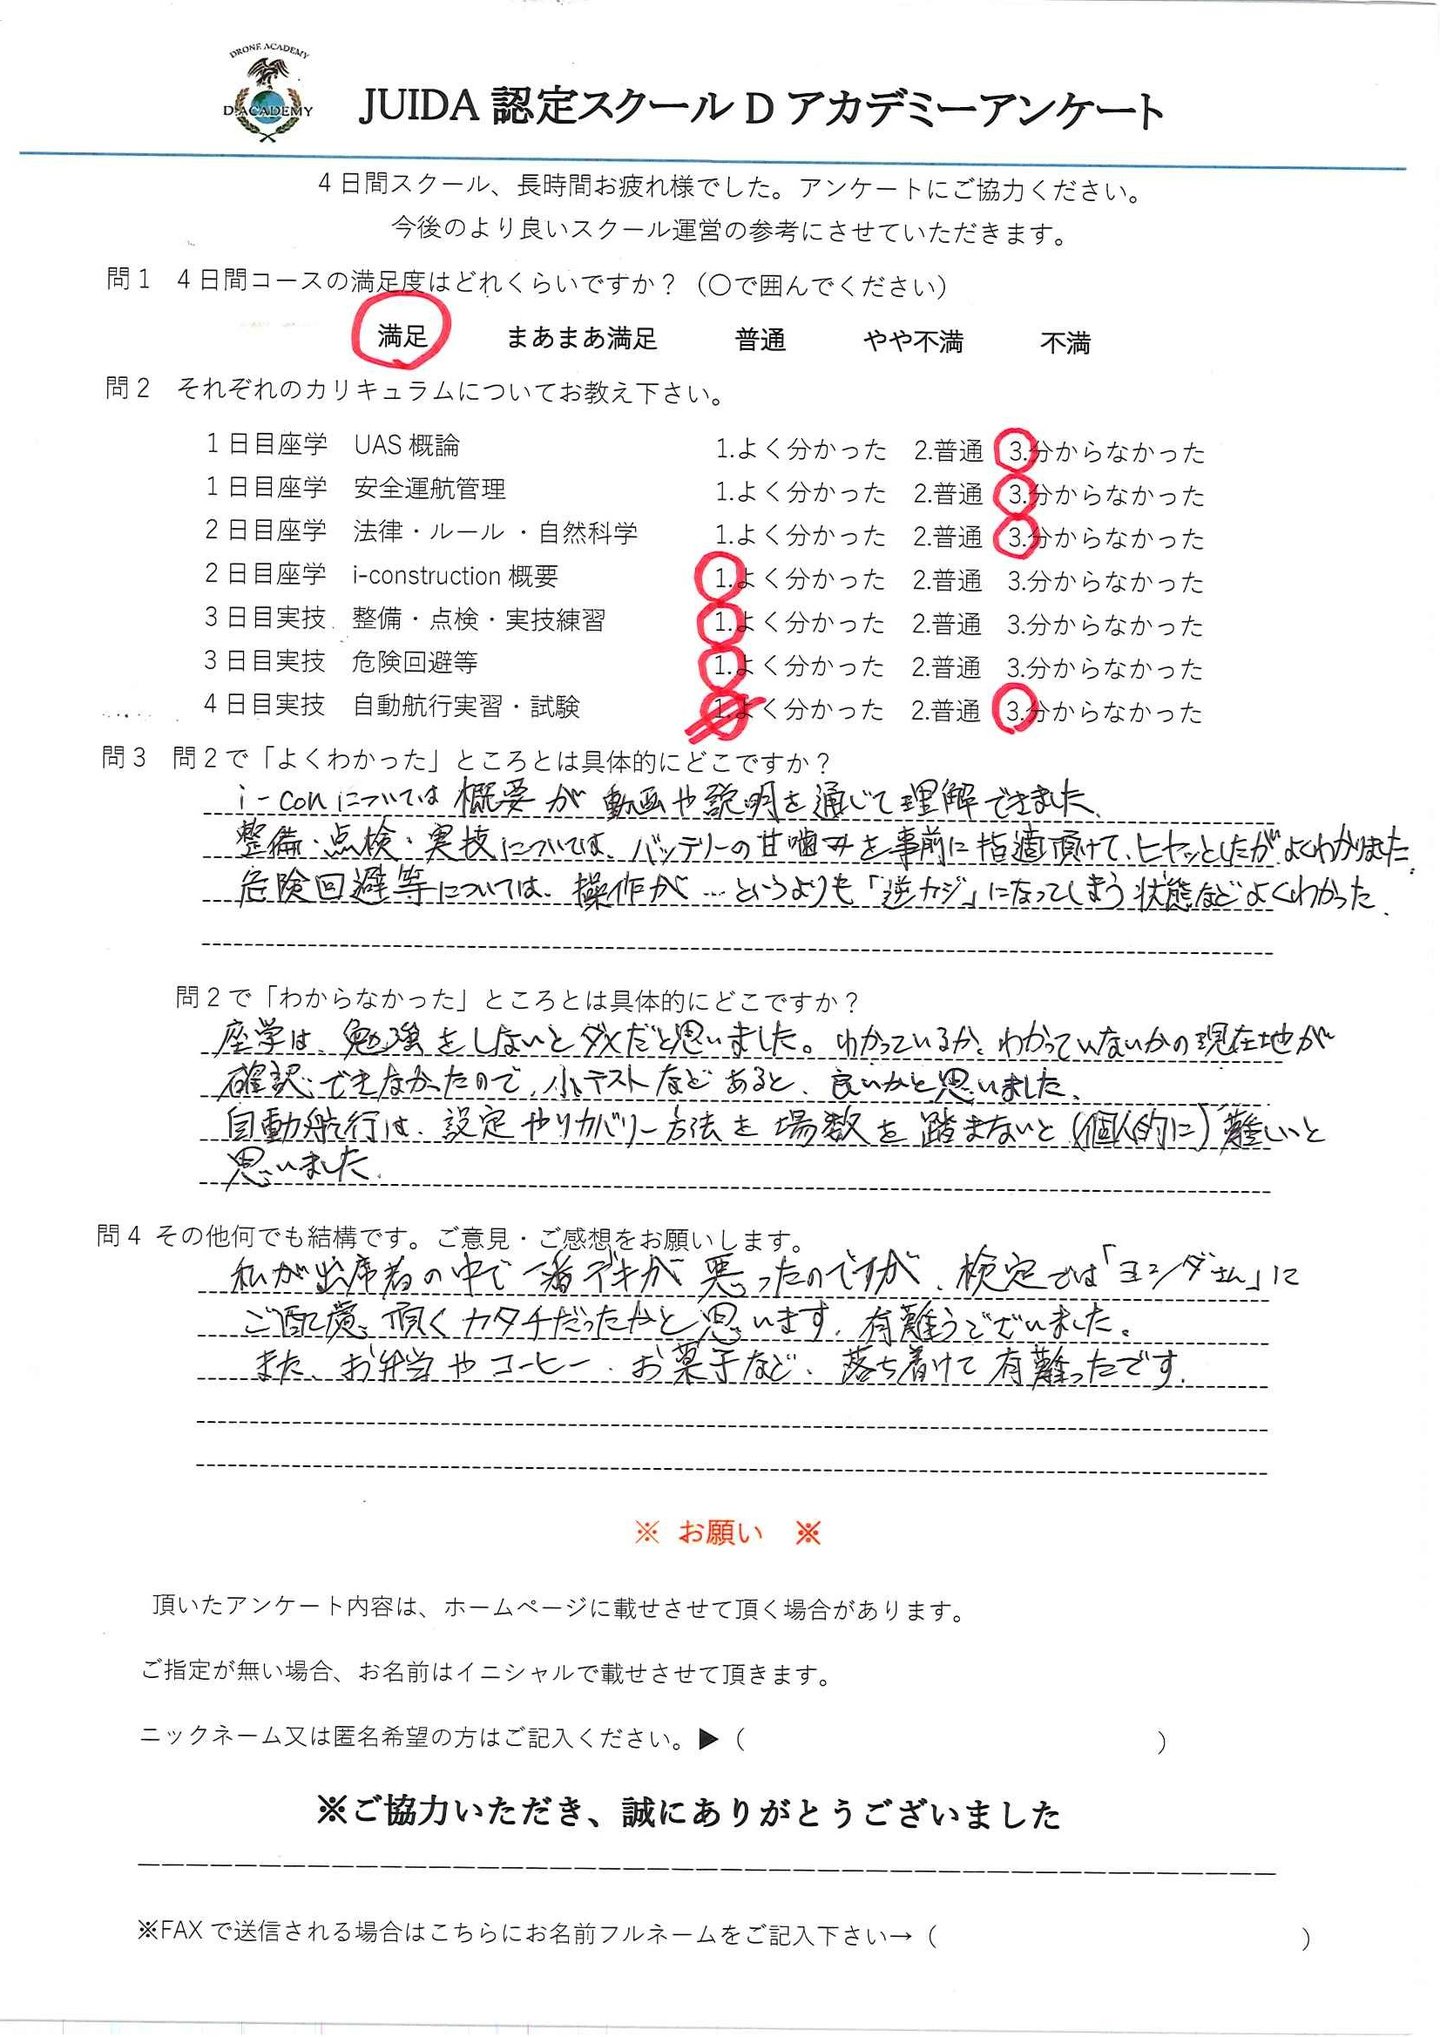 DRONE ACADEMY
D.ACADEMY
JUIDA 認定スクール D アカデミーアンケート
4日間スクール、長時間お疲れ様でした。アンケートにご協力ください。
今後のより良いスクール運営の参考にさせていただきます。
問1 4日間コースの満足度はどれくらいですか？（〇で囲んでください）
満足 まあまあ満足 普通 やや不満 不満
問2 それぞれのカリキュラムについてお教え下さい。
1日目座学 UAS概論 1.よく分かった 2.普通 3.分からなかった
1日目座学 安全運航管理 1.よく分かった 2.普通 3.分からなかった
2日目座学 法律・ルール・自然科学 1.よく分かった 2.普通 3.分からなかった
2日目座学 i-construction概要 1.よく分かった 2.普通 3.分からなかった
3日目実技 整備・点検・実技練習 1.よく分かった 2.普通 3.分からなかった
3日目実技 危険回避等 1.よく分かった 2.普通 3.分からなかった
4日目実技 自動航行実習・試験 1.よく分かった 2.普通 3.分からなかった
問3 問2で「よくわかった」ところとは具体的にどこですか？
i-conについては概要が動画や説明を通じて理解できました、
整備・点検・実技については、バッテリーの甘噛みを事前に指適頂けて、ヒヤッとしたがよくわかりました。
危険回避等については、操作が…というよりも「逆カジ」になってしまう状態などよくわかった、
問2で「わからなかった」ところとは具体的にどこですか？
座学は、勉強をしないとダメだと思いました。わかっているか、わかっていないかの現在地が
確認できなかったので、小テストなどあると、良いかと思いました、
自動航行は、設定やリカバリー方法を場数を踏まないと（個人的に）難しいと
思いました、
問4 その他何でも結構です。ご意見・ご感想をお願いします。
私が出席者の中で一番デキが悪ったのですが、検定では「ヨシダさん」に
ご配慮頂くカタチだったかと思います、有難うございました。
また、お弁当やコーヒー、お菓子など、落ち着けて有難ったです、
※ お願い ※
頂いたアンケート内容は、ホームページに載せさせて頂く場合があります。
ご指定が無い場合、お名前はイニシャルで載せさせて頂きます。
ニックネーム又は匿名希望の方はご記入ください。▶（ ）
※ご協力いただき、誠にありがとうございました
※FAXで送信される場合はこちらにお名前フルネームをご記入下さい→（ ）